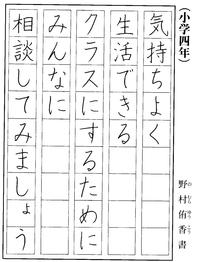 (小学四年)
気持ちよく
生活できる
クラスにするために
みんなに
相談してみましょう
野村侑香書
のむらゆうこう